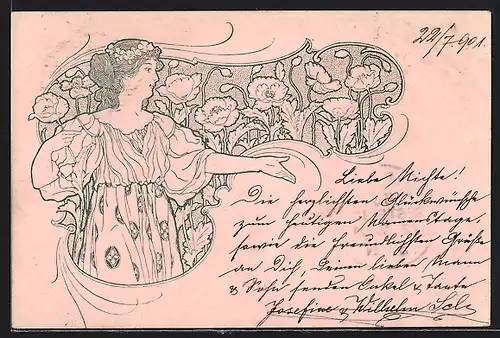 22/7.901.
Liebe Nichte!
Die herzlichsten Glückwünsche
zum heutigen Namenstage,
sowie die freundlichsten Grüße
an Dich, Deinen lieben Mann
& Sohn senden Onkel & Tante
Josefine & Wilhelm